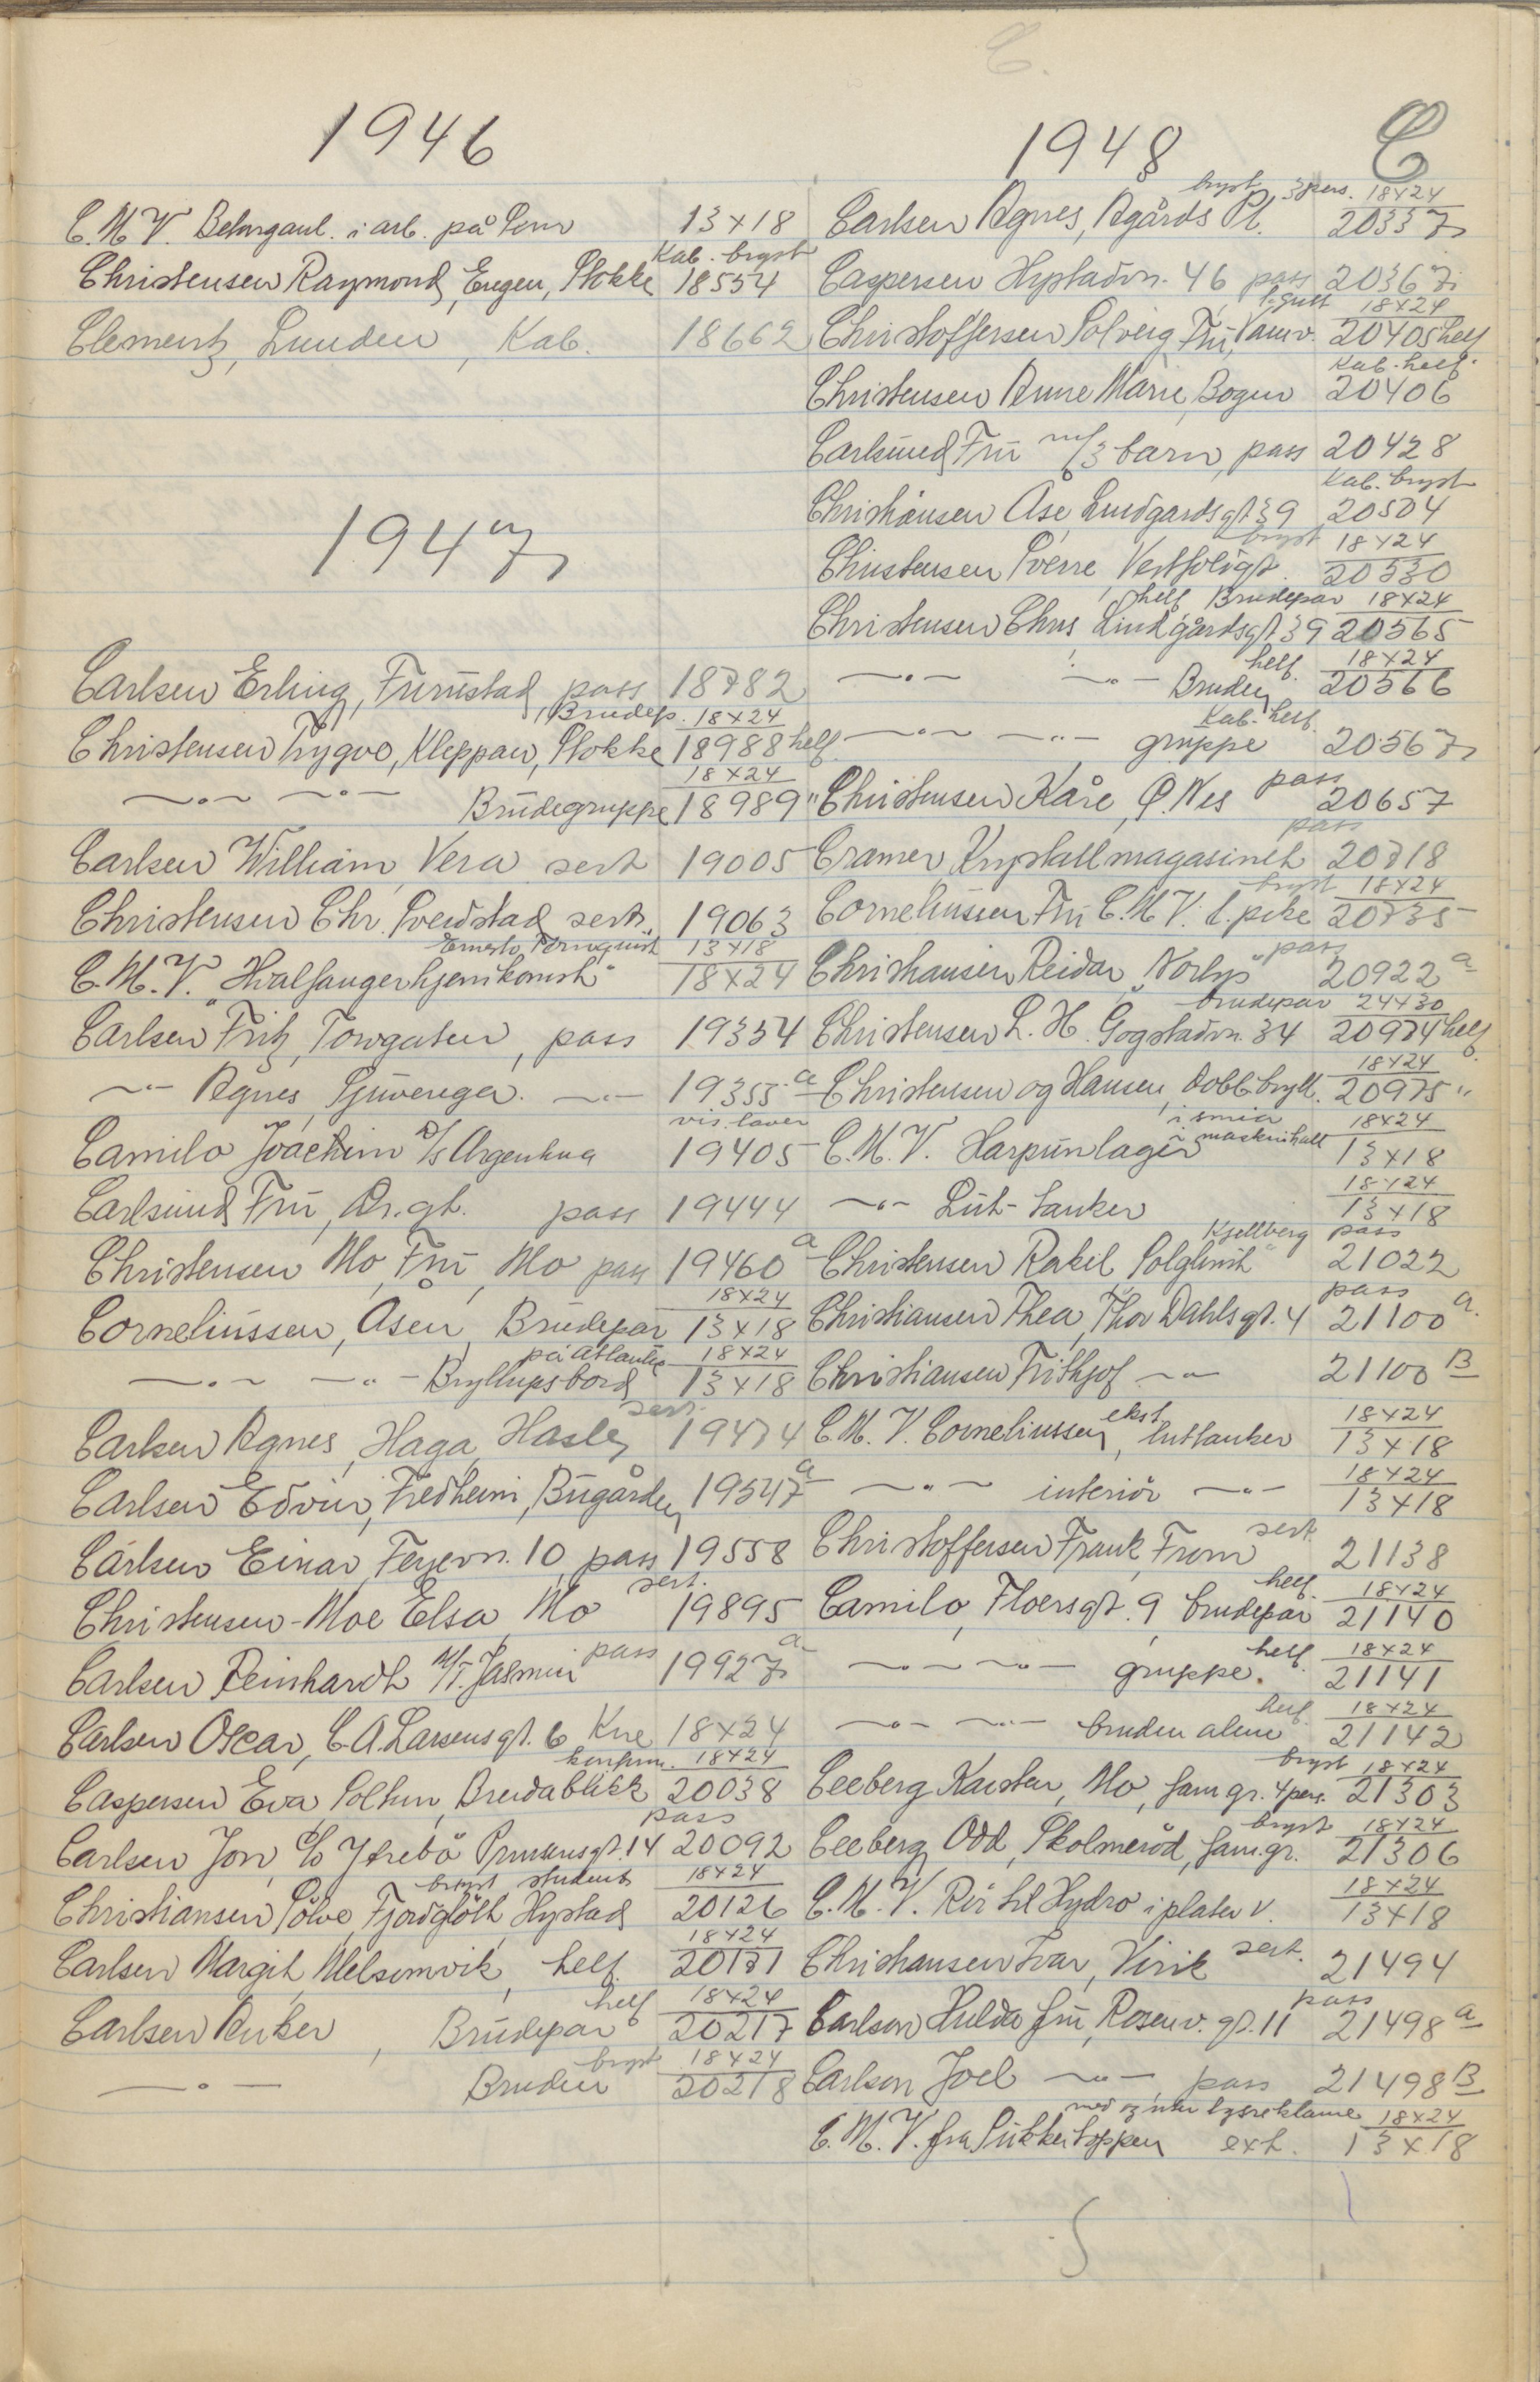 C.
1946
C.M.V. i arb. på 13x18
Kab. bryst
Christensen Raymond, Engen, Stokke 18554
Clementz, Lunden, Kab. 18662
1947
Carlsen Erling, Furustad, pass 18782
Brudep. 18x24
Christensen Trygve, Kleppan, Stokke 18988 helf.
18x24
—·— —·— Brudegruppe 18989 "
Carlsen William, Vera sert 19005
Christensen Chr. Sverdstad sert. 19063
Ernesto Tornquist 13x18
C.M.V. "Hvalfangerhjemkomst" 18x24
Carlsen Fritz, Torvgaten, pass 19354
—·— Agnes, —·— 19355 a
vis. laver
Camilo Joachim D/S Argentina 19405
Carlsund Frü, Dr.gt. pass 19444
Christensen Mo, Frü, Mo pass 19460 a
18x24
Corneliussen, Åsen, Brudepar 13x18
på Atlantic 18x24
—·— —·— Bryllupsbord 13x18
sert.
Carlsen Agnes, Haga, Hasle 19474
Carlsen Edvin, Fredheim, Bugården 19547 a
Carlsen Einar, Feyervn. 10, pass 19558
sert.
Christensen-Moe Elsa, Mo 19895
pass
Carlsen Reinhardt M/T. Jasmin 19927 a
Carlsen Oscar, C.A. Larsensgt. 6 Kne 18x24
konfirm. 18x24
Caspersen Eva Solhun, Breidablikk 20038
pass
Carlsen Jon, c/o Ytrebö Prinsensgt. 14 20092
bryst student 18x24
Christiansen Sölve, Fjordglött, Hystad 20126
18x24
Carlsen Margit, Melsomvik, helf. 20171
helf 18x24
Carlsen Anker, Brudepar 20217
bryst 18x24
—·— Bruden 20218
1948 C
bryst 3 pers. 18x24
Carlsen Agnes, Ågårds Pl. 20337
Caspersen Hystadvn. 46 pass 20367
1. gutt 18x24
Christoffersen Solveig Frü, Vamv. 20405 helf
Kab. helf.
Christensen Anne Marie, Bogen 20406
Carlsund Frü m/3 barn, pass 20428
Kab. bryst
Christiansen Åse, Lindgardsgt 39 20504
bryst 18x24
Christensen Sverre, Vestfoldgt. 20530
helf Brudepar 18x24
Christensen Chris, Lindgårdsgt 39 20565
helf. 18x24
—·— —·— Bruden 20566
Kab. helf.
—·— —·— gruppe 20567
pass
Christensen Kåre, Ö. Nes 20657
pass
Cramer, Krystallmagasinet 20718
bryst 18x24
Corneliussen Frü C.M.V. 1. pike 20735
pass
Christiansen Reidar "Norlys" 20922 a
brudepar 24x30
Christensen L.H. Gogstadvn. 34 20974 helf.
18x24
Christensen og Hansen, Dobb. bryll. 20975 "
i smia 18x24
C.M.V. Harpunlager i maskinhall 13x18
18x24
—·— Lüt-tanker 13x18
Kjellberg pass
Christensen Rakel, Solglimt 21022
pass
Christiansen Thea, Thor Dahlsgt. 4 21100 a.
Christiansen Frithjof —·— 21100 B
ekst. 18x24
C.M.V. Corneliussen, luttanker 13x18
18x24
—·— interiör —·— 13x18
sert.
Christoffersen Frank, From 21138
helf. 18x24
Camilo, Floersgt. 9, brudepar 21140
helf. 18x24
—·— —·— gruppe. 21141
helf. 18x24
—·— —·— bruden alene 21142
bryst 18x24
Ceeberg Karsten, Mo, fam gr. 4 pers. 21303
bryst 18x24
Ceeberg Odd, Skolmeröd, fam.gr. 21306
18x24
C.M.V. Rör til Hydro i plater v. 13x18
sert.
Christiansen Ivar, Virik 21494
pass
Carlson Hulda frü, Rosenv. gt. 11 21498 a
Carlson Joel —·—, pass 21498 B
med og uten lysreklame 18x24
C.M.V. fra Sukkertoppen ext. 13x18